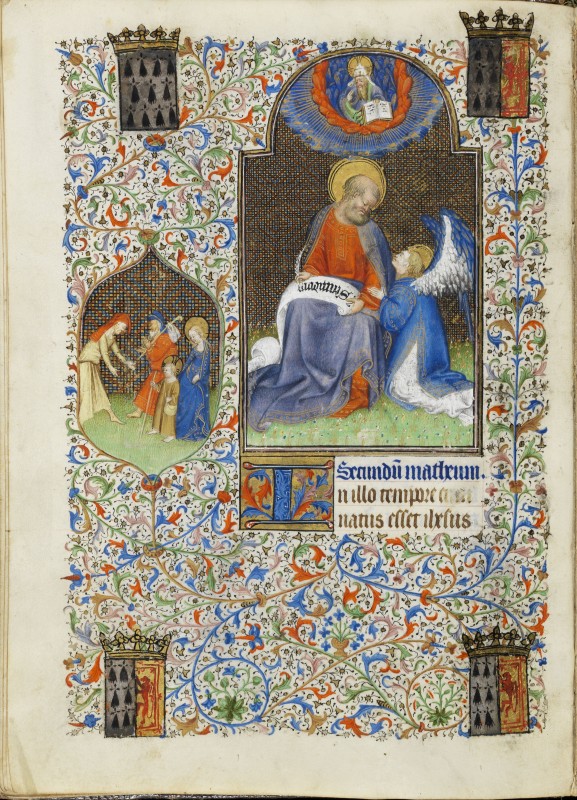 Secundũ matheum.
In illo tempore cum
natus esset ihesus